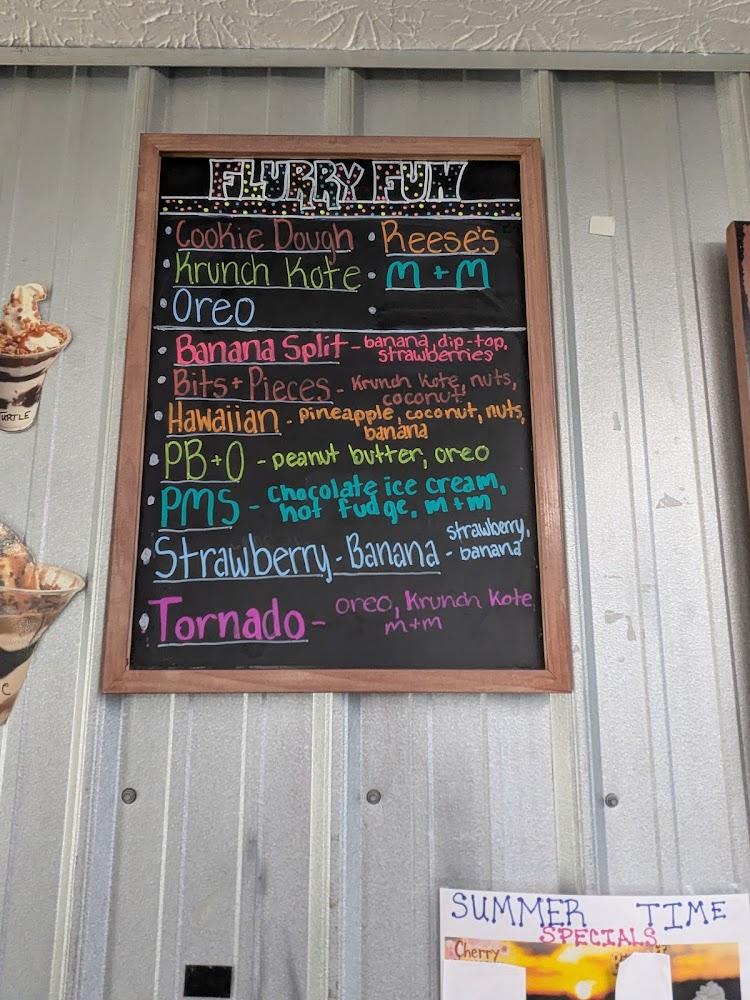 FLURRY FUN
• Cookie Dough • Reese's
Krunch Kote • M + M
• Oreo •
• Banana Split - banana, dip-top,
strawberries
• Bits + Pieces - Krunch Kote, nuts,
coconut
• Hawaiian - pineapple, coconut, nuts,
banana
• PB + O - peanut butter, oreo
• PMS - chocolate ice cream,
hot fudge, m+m
• Strawberry - Banana - strawberry,
banana
• Tornado - oreo, Krunch Kote
m+m
TURTLE
SUMMER TIME
SPECIALS
Cherry